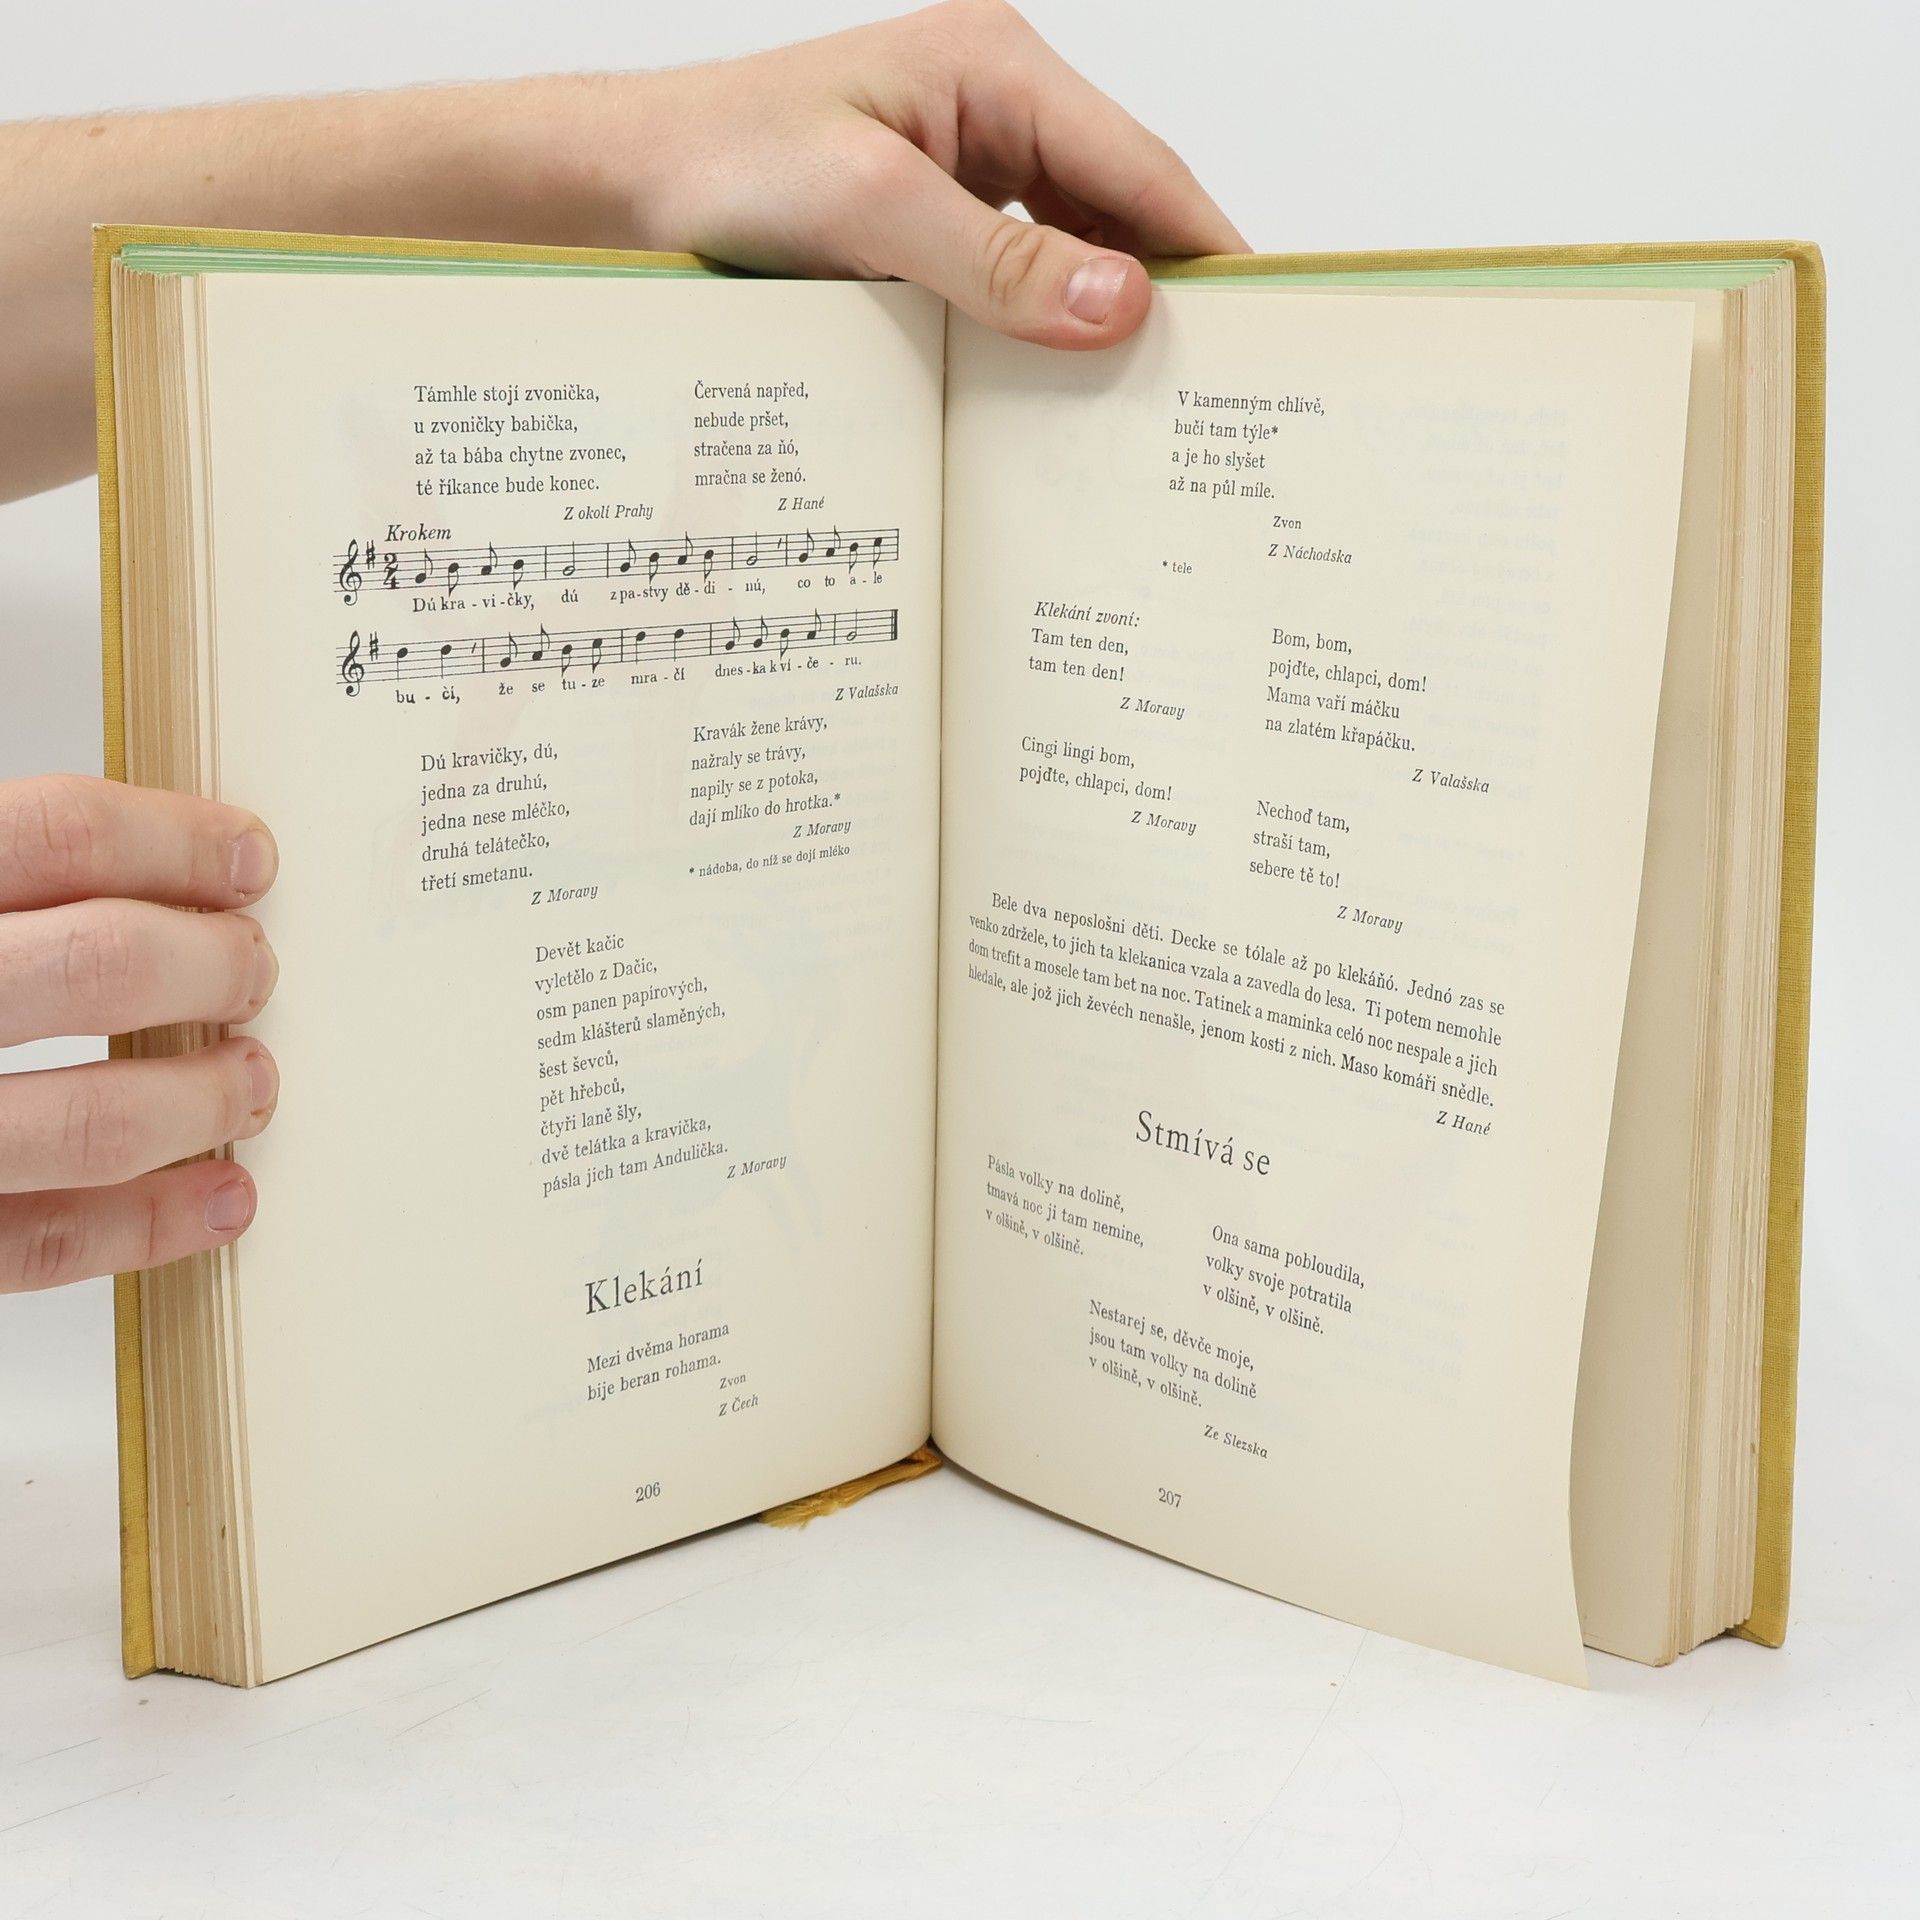 Támhle stojí zvonička,
u zvoničky babička,
až ta bába chytne zvonec,
té říkance bude konec.
Z okolí Prahy
Červená napřed,
nebude pršet,
stračena za ňó,
mračna se ženó.
Z Hané
Krokem
2
4
Dú kra - vi - čky, dú z pa - stvy dě - di - nú, co to a - le
bu - čí, že se tu - ze mra - čí dnes - ka k ví - če - ru.
Z Valašska
Dú kravičky, dú,
jedna za druhú,
jedna nese mléčko,
druhá telátečko,
třetí smetanu.
Z Moravy
Kravák žene krávy,
nažraly se trávy,
napily se z potoka,
dají mlíko do hrotka.*
Z Moravy
* nádoba, do níž se dojí mléko
Devět kačic
vyletělo z Dačic,
osm panen papírových,
sedm klášterů slaměných,
šest ševců,
pět hřebců,
čtyři laně šly,
dvě telátka a kravička,
pásla jich tam Andulička.
Z Moravy
Klekání
Mezi dvěma horama
bije beran rohama.
Zvon
Z Čech
206
V kamenným chlívě,
bučí tam týle*
a je ho slyšet
až na půl míle.
Zvon
Z Náchodska
* tele
Klekání zvoní:
Tam ten den,
tam ten den!
Z Moravy
Cingi lingi bom,
pojďte, chlapci, dom!
Z Moravy
Bom, bom,
pojďte, chlapci, dom!
Mama vaří máčku
na zlatém křapáčku.
Z Valašska
Nechoď tam,
straší tam,
sebere tě to!
Z Moravy
Bele dva neposlošni děti. Decke se tólale až po klekáňó. Jednó zas se
venko zdržele, to jich ta klekanica vzala a zavedla do lesa. Ti potem nemohle
dom trefit a mosele tam bet na noc. Tatinek a maminka celó noc nespale a jich
hledale, ale jož jich ževéch nenašle, jenom kosti z nich. Maso komáři snědle.
Z Hané
Stmívá se
Pásla volky na dolině,
tmavá noc ji tam nemine,
v olšině, v olšině.
Ona sama pobloudila,
volky svoje potratila
v olšině, v olšině.
Nestarej se, děvče moje,
jsou tam volky na dolině
v olšině, v olšině.
Ze Slezska
207